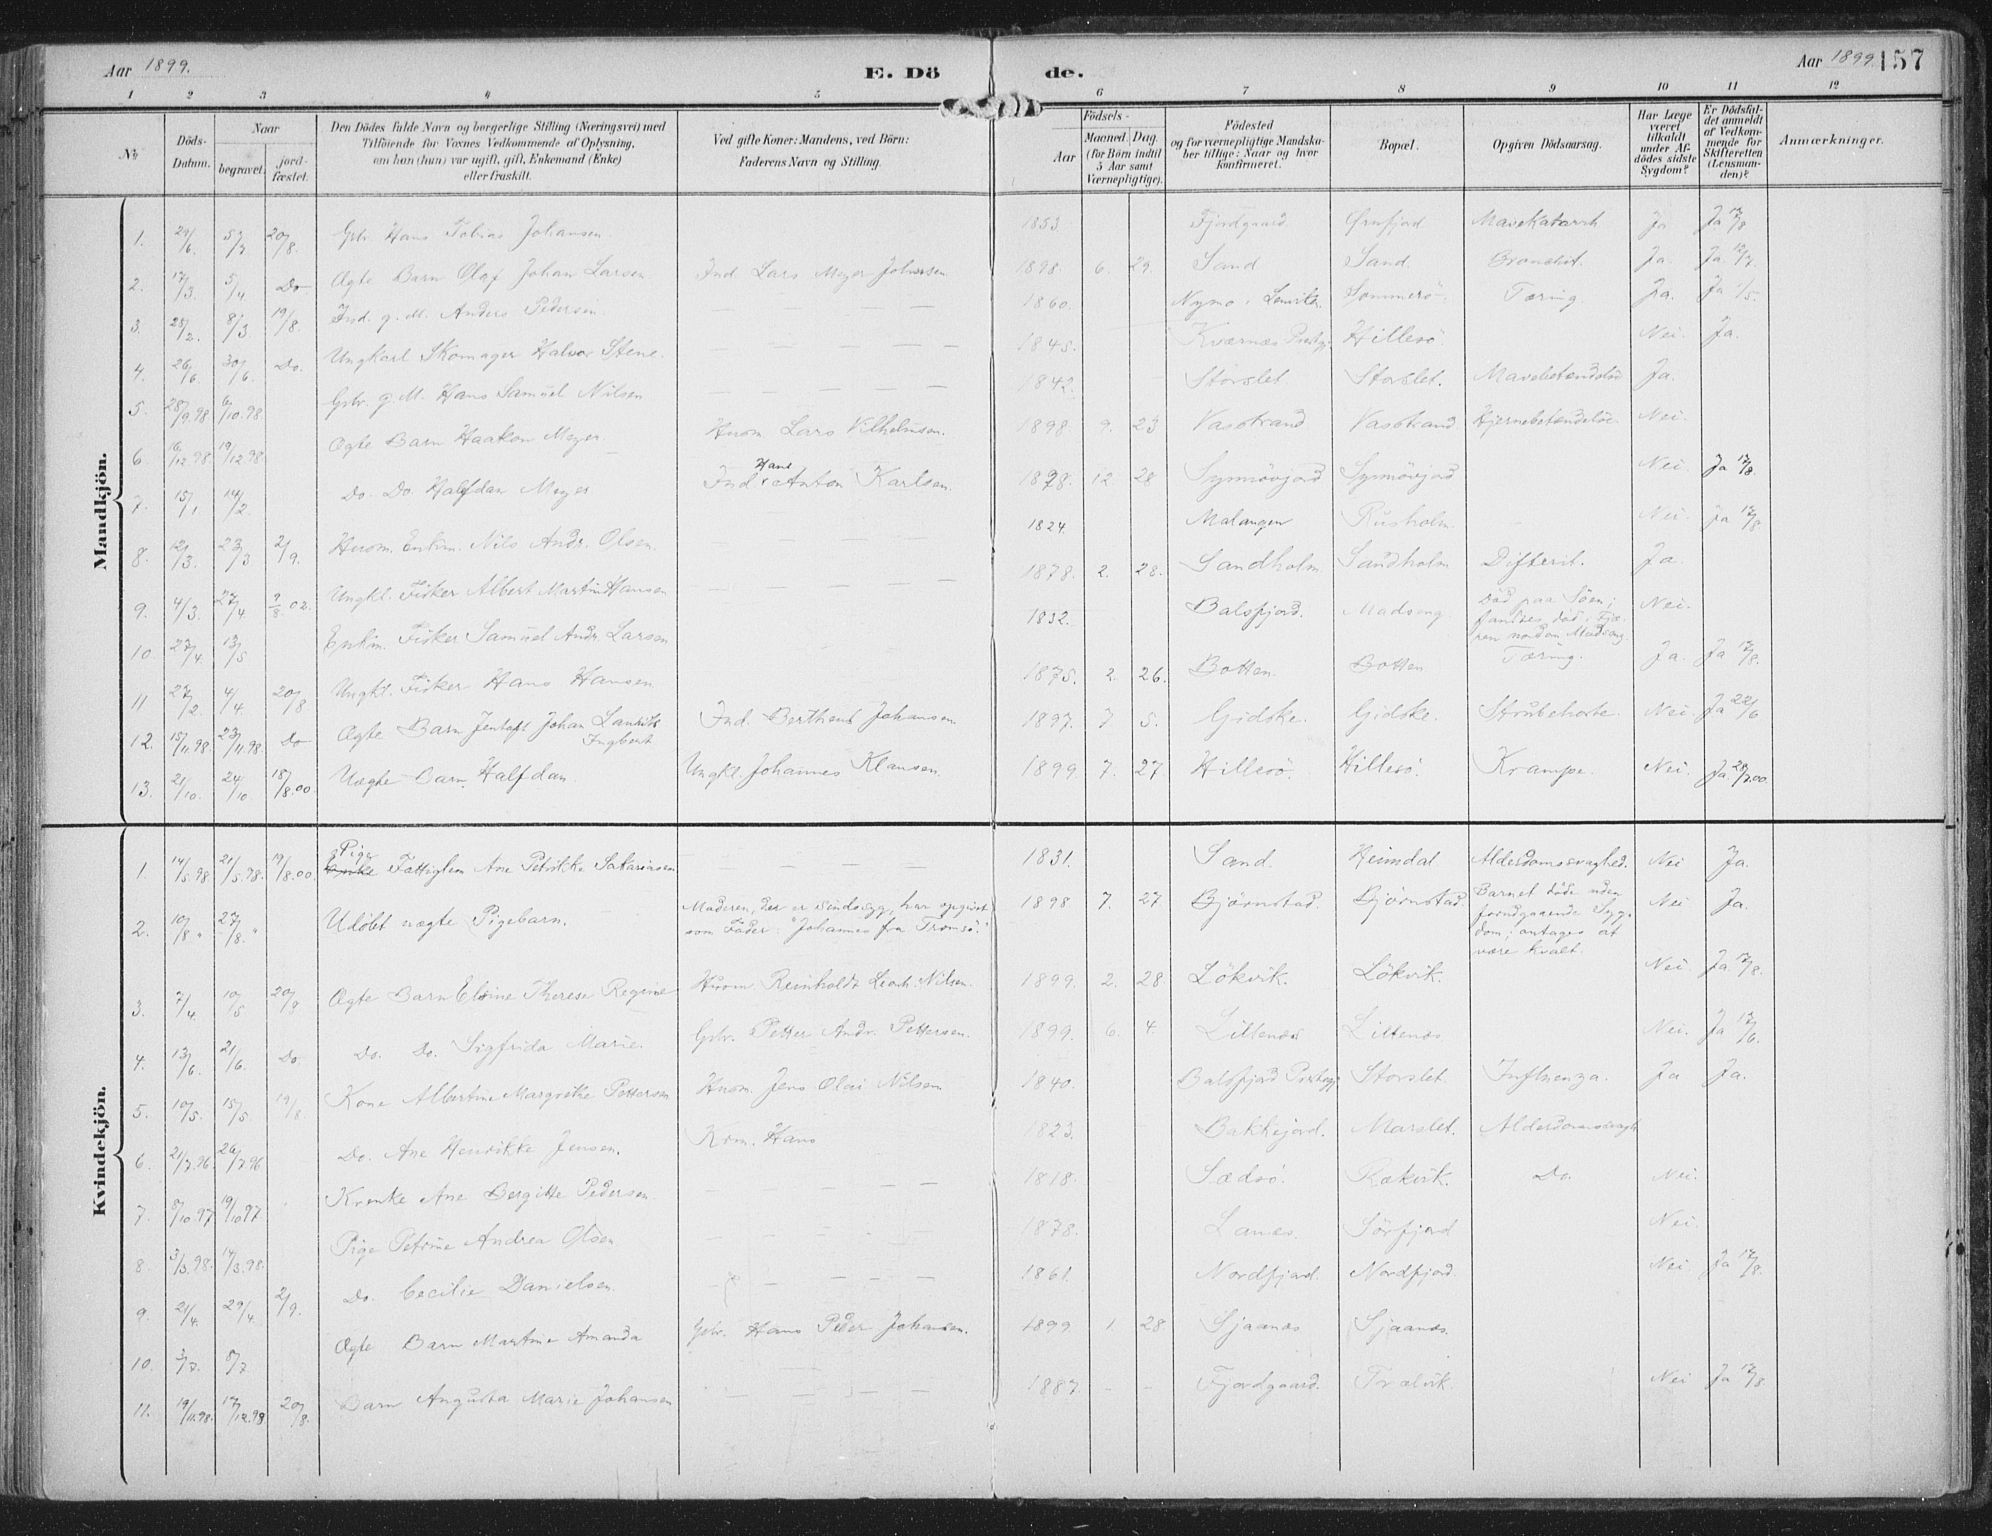 Aar 1899. E. Dö de. Aar 1899. 157
1 2 3 4 5 6 7 8 9 10 11 12
No. Döds-Datum. Naar begravet. jord-fæstet. Den Dödes fulde Navn og borgerlige Stilling (Næringsvei) med Tilföiende for Voxnes Vedkommende af Oplysning, om han (hun) var ugift, gift, Enkemand (Enke) eller fraskilt. Ved gifte Koner: Mandens, ved Börn: Faderens Navn og Stilling. Födsels- Aar Maaned. Dag. (for Börn indtil 5 Aar samt Værnepligtige). Födested og for værnepligtige Mandskaber tillige: Naar og hvor konfirmeret. Bopæl. Opgiven Dödsaarsag. Har Læge været tilkaldt under Afdödes sidste Sygdom? Er Dödsfaldet anmeldt af Vedkommende for Skifteretten (Lensmanden)? Anmærkninger.
Mandkjön.
1. 24/6. 5/7 20/8. Gbr. Hans Tobias Johansen 1853. Fjordgaard Ørnfjord Mavekatarrh Ja Ja 17/8
2. 17/3. 5/4 Do Ægte Barn Olaf Johan Larsen Ind. Lars Meyer Johansen 1898. 6. 29. Sand Sand. Bronchit. Ja. Ja. 12/7.
3. 25/2. 8/3 19/8. Ind. g. M. Anders Pedersen. 1860. Nymo i Lenvik. Sommerö Tæring. Ja. Ja 1/5.
4. 26/6. 30/6. Do. Ungkarl Skomager Halvor Stene. 1845. Kværnæs Prestgj. Hillesö. Nei. Ja.
5. 28/9.98 6/10.98. Gbr. g. M. Hans Samuel Nilsen 1842. Storslet Storslet. Mavebetændelse Ja.
6. 16/12.98 19/12.98. Ægte Barn Haakon Meyer Husm. Lars Vilhelmsen. 1898. 9. 23 Vasstrand Vasstrand Hjernebetændelse. Nei.
7. 15/1 14/2. Do. Do. Halfdan Meyer Ind. Hans Anton Karlsen. 1898. 12. 28 Nei. Ja 17/8.
8. 12/3. 23/3 2/9. Husm. Enkm. Nils Andr. Olsen. 1824. Malangen Rusholm. Nei. Ja 17/8.
9. 4/3 27/4. 9/8 02. Ungkl. Fisker Albert Martin Hansen 1878. 2. 28. Sandholm Sandholm Difterit. Ja.
10. 27/4. 13/5 Enkm. Fisker Samuel Andr. Larsen 1832. Balsfjord. Död paa Söen; fandtes död i Fjæren nordom Nei.
11 27/2. 4/4. 20/8 Ungkl. Fisker Hans Hansen 1875. 2. 26. Botten. Botten Tæring. Ja. Ja 17/8.
12. 15/11.98. 23/11.98. Do Ægte Barn Jentoft Johan Laurits Ingbert Ind. Bertheus Johansen 1897. 7 5. Gidske. Gidske. Strubehoste. Nei. Ja 22/6
13. 21/10. 24/10. 18/8.00 Uægte Barn Halfdan. Ungkl. Johannes Klausen. 1899. 7. 27. Hillesö. Hillesö. Krampe. Nei. Ja 28/7.00.
Kvindekjön.
1. 14/5.98. 21/5.98. 19/8.00. Pige Fattiglem Ane Petrikke Sakariasen 1831. Sand. Heimdal Alderdomssvaghed. Nei Ja.
2. 10/8 " 27/8. " Udöbt uægte Pigebarn. Moderen, der er sindssyg, har opgivet som Fader: "Johannes fra Tromsö." 1898 7. 27 Bjørnstad. Bjørnstad. Barnet döde uden forudgaaende Sygdom; antages at være kvalt. Nei Ja.
3. 7/4. 10/5 20/8 Ægte Barn Elsine Therese Regine Husm. Reinholdt Leonh. Nilsen. 1899. 2. 28 Lökvik. Lökvik. Nei Ja 17/8.
4. 13/6. 21/6. Do Do. Do. Sigfrida Marie. Gbr. Petter Andr. Pettersen. 1899. 6. 4 Lillenæs Lillenæs Nei. Ja 17/6.
5. 10/5. 15/5. 19/8. Kone Albertine Margrethe Pettersen Husm. Jens Olai Nilsen 1840. Balsfjord Prestegj. Storslet. Influenza. Ja Ja.
6. 21/7.96. 26/7.96 Do. Ane Henrikke Jensen. Krm. Hans 1823. Bakkejord. Marslet. Alderdomssvagh
7. 8/10.97 19/10.97. Ane Bergitte Pedersen 1818. Rækvik. Do. Nei.
8. 3/3.98. 17/3.98. Pige Petrine Andrea Olsen 1878. Lanes. Sörfjord Nei.
9. 21/4. 29/4. 2/9. Do. Cecilie Danielsen. 1861. Nordfjord. Nordfjord. Nei. Ja 17/8.
10. 3/7. 8/7 Ægte Barn Martine Amanda Gbr. Hans Peder Johansen. 1899. 1. 28 Sjaanæs Sjaanæs.
11. 19/11.98. 17/12.98 20/8. Barn Augusta Marie Johansen 1887. Fjordgaard. Trælvik. Nei Ja 17/8